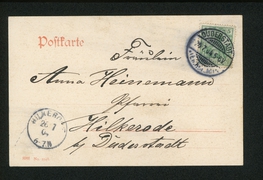 Postkarte
Fräulein
Anna Heinemann
Pfarrei
Hilkerode
b/ Duderstadt
HILKERODE
26/7